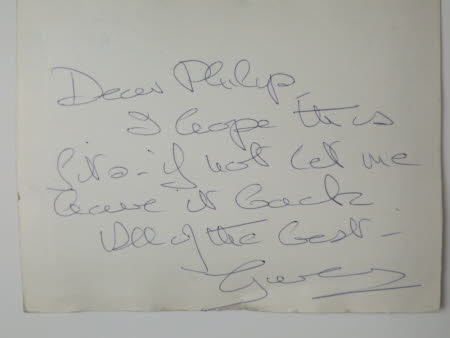 Dear Philip,
I hope this
fits - if not let me
have it back
All of the best -